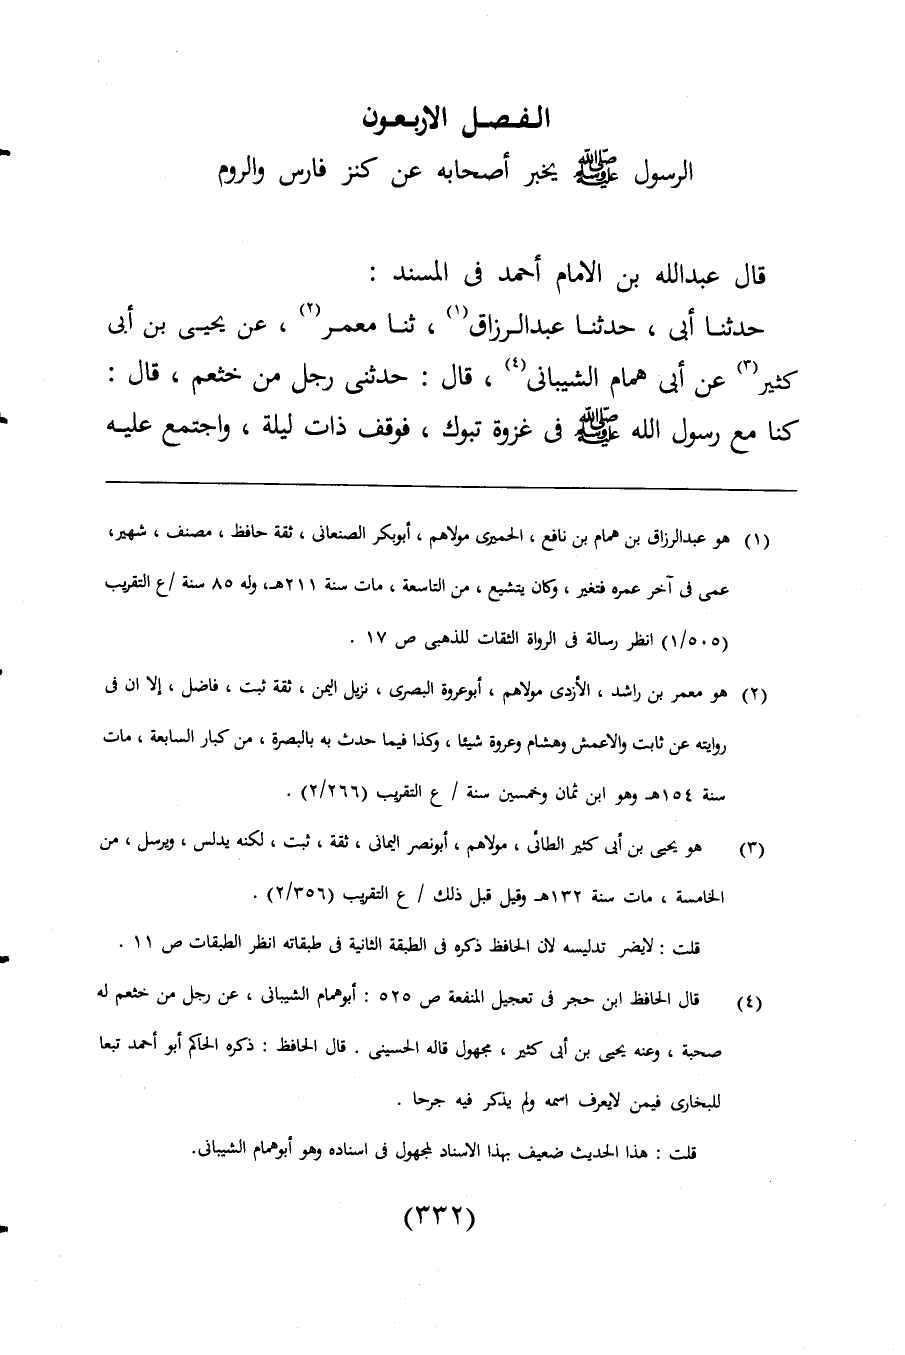 الفصل الاربعون
الرسول ﷺ يخبر أصحابه عن كنز فارس والروم
قال عبدالله بن الامام أحمد فى المسند :
حدثنا أبى ، حدثنا عبدالرزاق(١) ، ثنا معمر(٢) ، عن يحيى بن أبى
كثير(٣) عن أبى همام الشيبانى(٤) ، قال : حدثنى رجل من خثعم ، قال :
كنا مع رسول الله ﷺ فى غزوة تبوك ، فوقف ذات ليلة ، واجتمع عليه
(١) هو عبدالرزاق بن همام بن نافع ، الحميرى مولاهم ، أبوبكر الصنعانى ، ثقة حافظ ، مصنف ، شهير،
عمى فى آخر عمره فتغير ، وكان يتشيع ، من التاسعة ، مات سنة ٢١١هـ، وله ٨٥ سنة /ع التقريب
(١/٥٠٥) انظر رسالة فى الرواة الثقات للذهبى ص ١٧ .
(٢) هو معمر بن راشد ، الأزدى مولاهم ، أبوعروة البصرى ، نزيل اليمن ، ثقة ثبت ، فاضل ، إلا ان فى
روايته عن ثابت والاعمش وهشام وعروة شيئا ، وكذا فيما حدث به بالبصرة ، من كبار السابعة ، مات
سنة ١٥٤هـ وهو ابن ثمان وخمسين سنة / ع التقريب (٢/٢٦٦) .
(٣) هو يحيى بن أبى كثير الطائى ، مولاهم ، أبونصر اليمانى ، ثقة ، ثبت ، لكنه يدلس ، ويرسل ، من
الخامسة ، مات سنة ١٣٢هـ وقيل قبل ذلك / ع التقريب (٢/٣٥٦) .
قلت : لايضر تدليسه لان الحافظ ذكره فى الطبقة الثانية فى طبقاته انظر الطبقات ص ١١ .
(٤) قال الحافظ ابن حجر فى تعجيل المنفعة ص ٥٢٥ : أبوهمام الشيبانى ، عن رجل من خثعم له
صحبة ، وعنه يحيى بن أبى كثير ، مجهول قاله الحسينى . قال الحافظ : ذكره الحاكم أبو أحمد تبعا
للبخارى فيمن لايعرف اسمه ولم يذكر فيه جرحا .
قلت : هذا الحديث ضعيف بهذا الاسناد لمجهول فى اسناده وهو أبوهمام الشيبانى.
(٣٣٢)